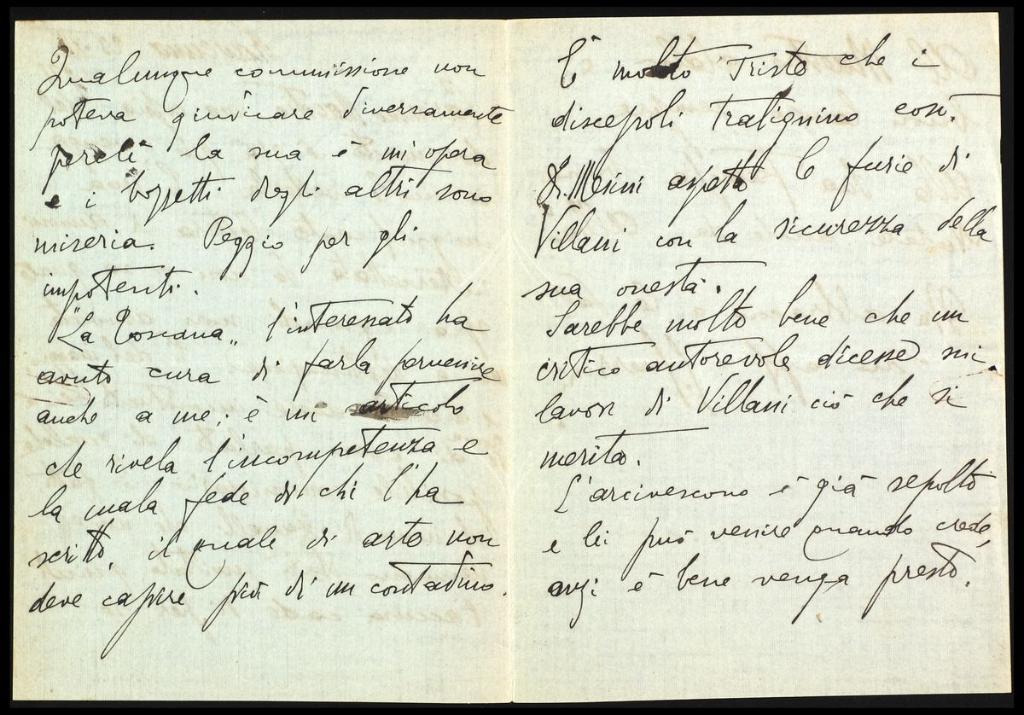 Qualunque commissione non
poteva giudicare diversamente
perchè la sua è un'opera
e i bozzetti degli altri sono
miseria. Peggio per gli
impotenti.
"La Toscana„ l'interessato ha
avuto cura di farla pervenire
anche a me; è un articolo
che rivela l'incompetenza e
la mala fede di chi l'ha
scritto, il quale di arte non
deve capire più di un contadino.
È molto triste che i
discepoli tralignino così.
Mesini aspetta le furie di
Villani con la sicurezza della
sua onestà.
Sarebbe molto bene che un
critico autorevole dicesse sui
lavori di Villani ciò che si
merita.
L'arcivescovo è già sepolto
e lei può venire quando crede,
anzi è bene venga presto.